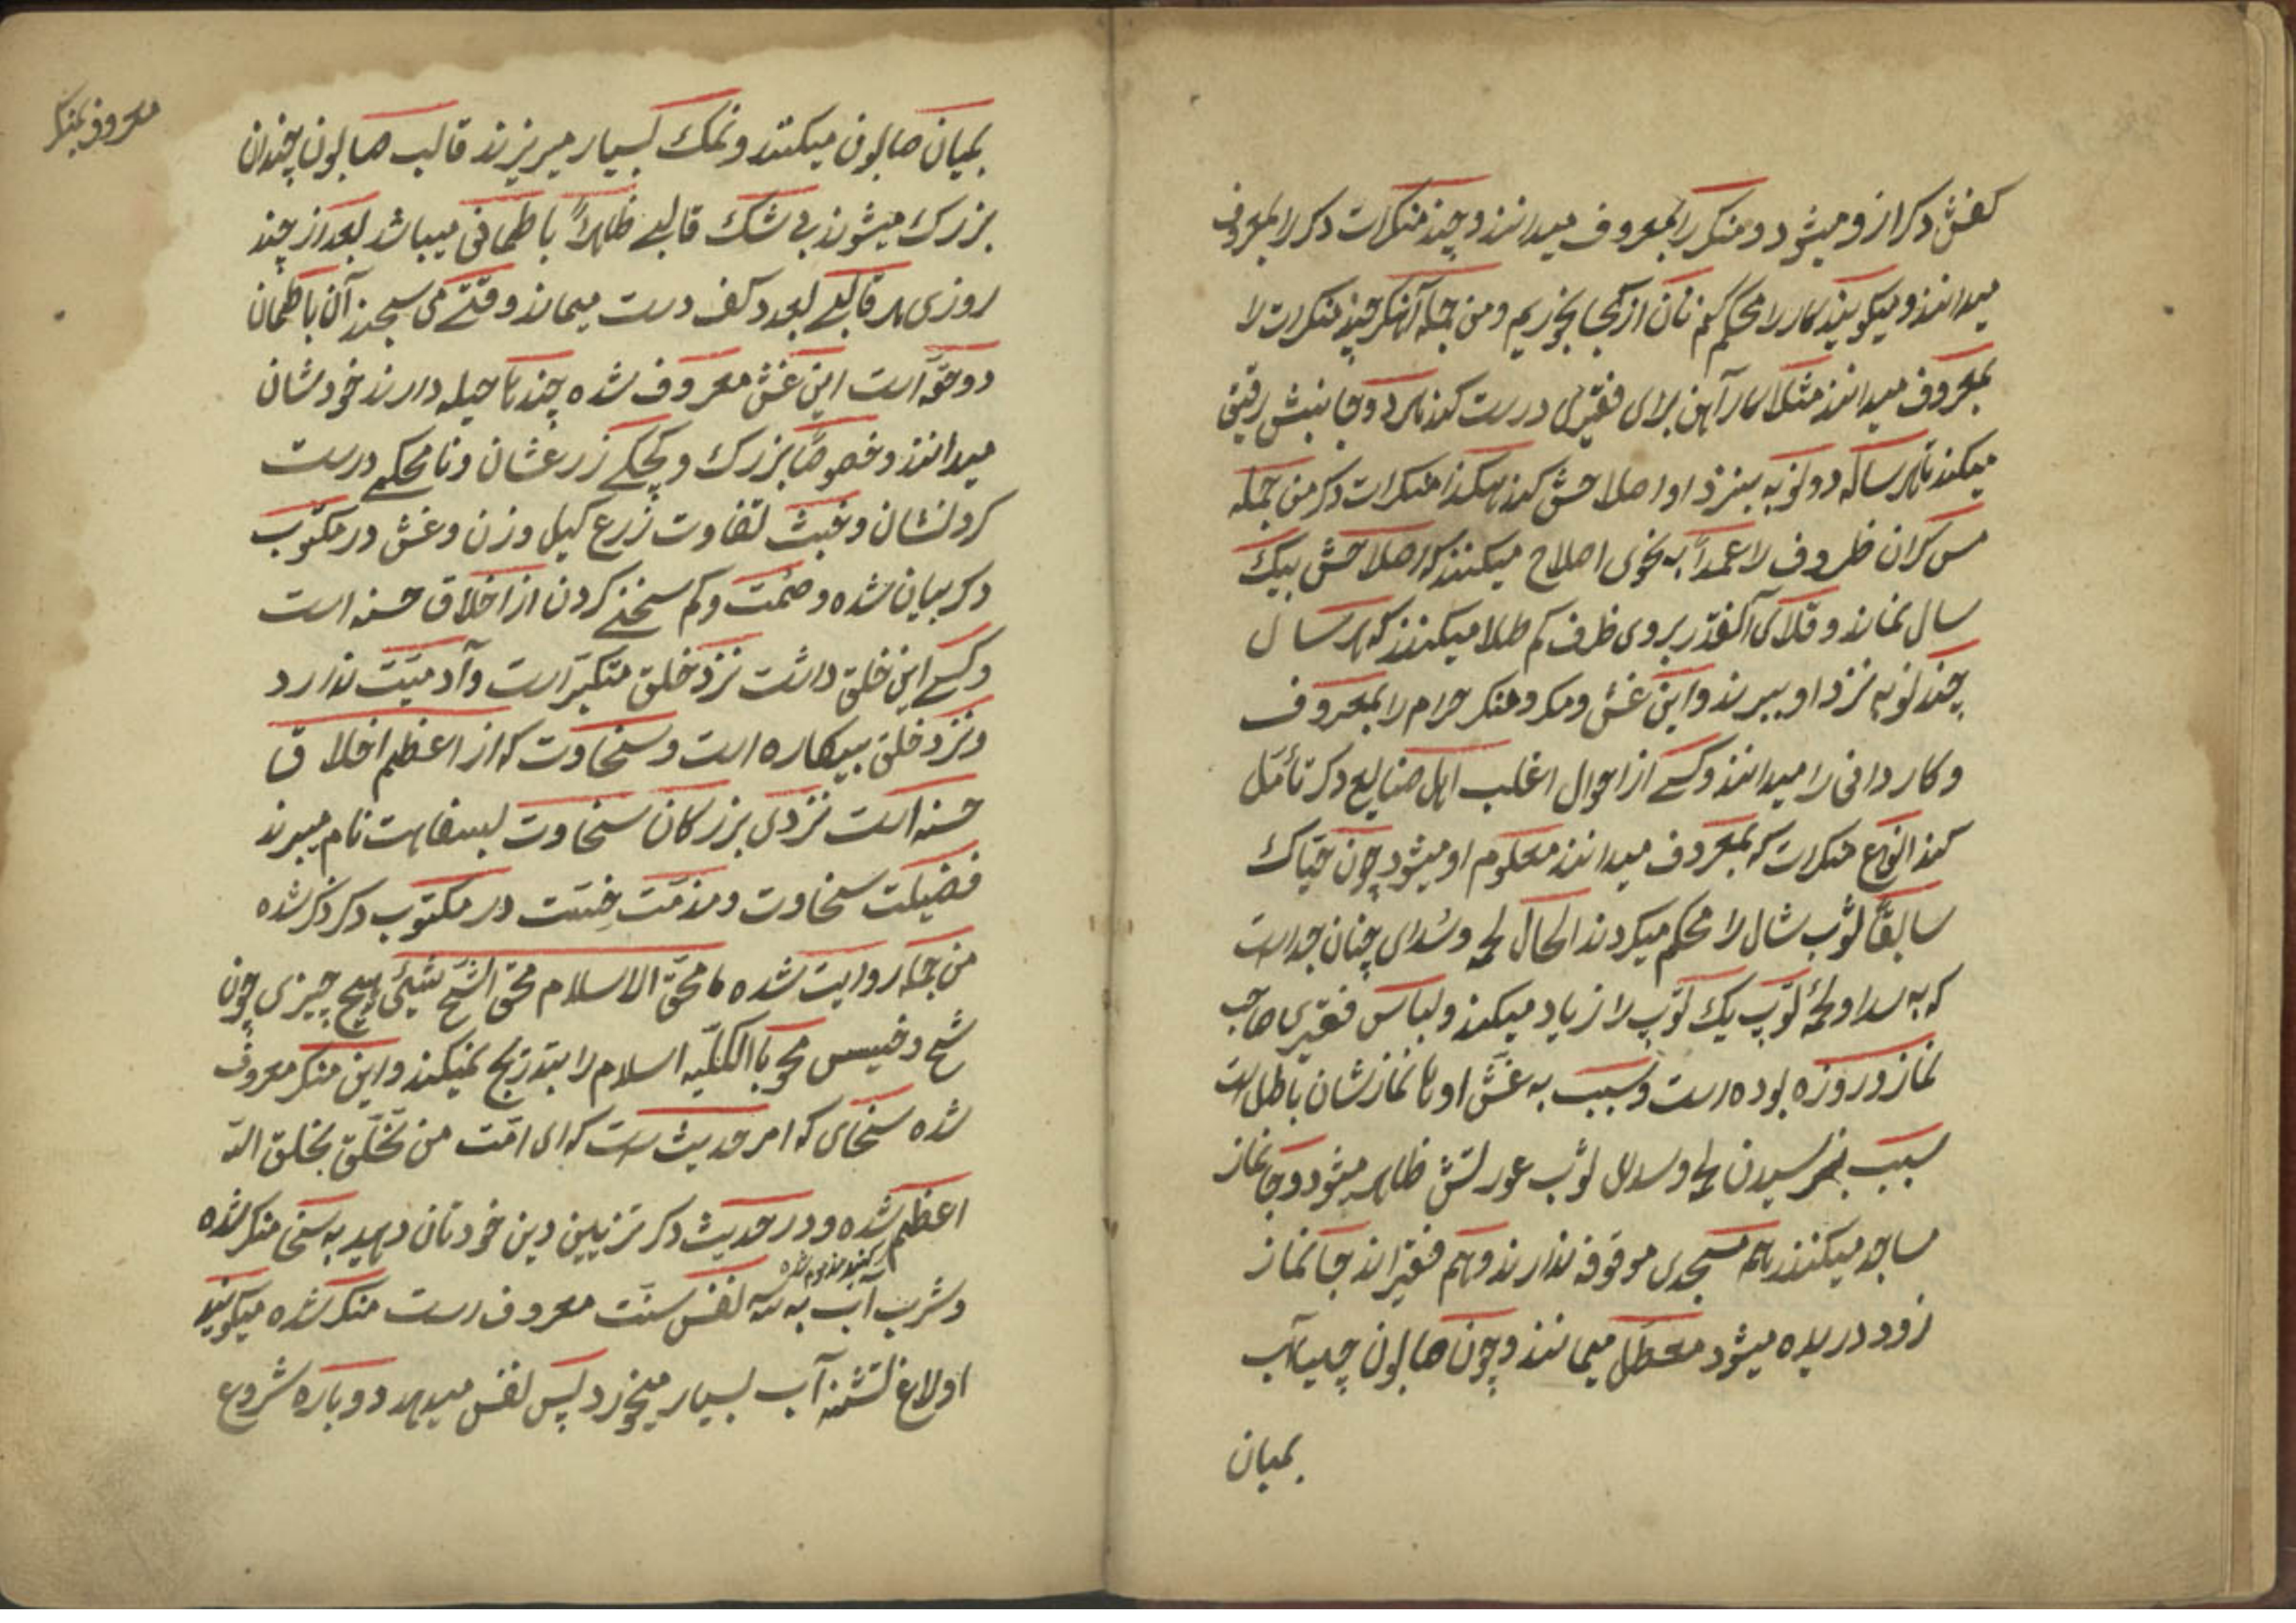 کفش دکر از و میشود و منکر را بمعروف میدانند و چند منکرات دکر را بمعروف
میدانند و میکویند کار را محکم کنم نان از کجا بخوریم و من جمله آهنکر چند منکرات را
بمعروف میدانند مثلا کار آهن برای فقیری درست کند هر دو جانبش رقیق
میکند تا هر ساله دو نوبه ببرند او اصلاحش کند هکذا منکرات دکر من جمله
مس کران ظروف را عمداً به نحوی اصلاح میکنند که اصلاحش بیک
سال نماند و قلای آنقدر بروی ظرف کم طلا میکنند که هر سال
چند نوبه نزد او ببرند و این غش و مکر و منکر حرام را بمعروف
و کار دانی را میدانند و کسی از احوال اغلب اهل صنایع دکر تأمّل
کند انواع منکرات که بمعروف میدانند معلوم او میشود چون حیّاک
سابقاً ثوب شال را محکم میکردند الحال لحمه و سدای چنان جداست
که به سدا و لحمهٔ ثوب یک ثوب را زیاد میکند و لباس فقیری صاحب
نماز و روزه بوده است و سبب به غش او نماز نشان باطل است
سبب نرسیدن لحمه و سدای ثوب عورتش ظاهر میشود و جا نماز
ساجد میکنند هم مسجدی موقوفه ندارند و هم فقیراند جا نماز
زود دریده میشود معطل میمانند و چون صابون چیها آب
بمیان
معروف بمنکر
بمیان صابون میکنند و نمک بسیار میریزند قالب صابون چندان
بزرک میشوند بی شک قالبے ظاهراً باطمانی میباشد بعد از چند
روزی هر قالبے بعدد کف دست میماند وقتے می سنجند آن باطمان
دو حقّه است این غش معروف شده چند تا حیله دارند خودشان
میدانند و خصوصًا بزرک و کچکے زرعشان و نا محکمے درست
کردنشان و خبث تفاوت زرع کیل وزن و غش در مکتوب
دکر بیان شده و صُمت و کم سخنے کردن از اخلاق حسنه است
و کسے این خلق داشت نزد خلق متکبّر است و آدمیّت ندارد
و نزد خلق بیکاره است و سخاوت که از اعظم اخلاق
حسنه است نزدی بزرکان سخاوت بسفاهت نام میبرند
فضیلت سخاوت و مذمّت خسّت در مکتوب دکر ذکر شده
من جمله روایت شده ما محق الاسلام محق الشّح شیئی هیچ چیزی چون
شح و خسیس محو با الکلّیه اسلام را بتدریج نمیکند و این منکر معروف
شده سخای که امر حدیث است که ای امّت من تخلّق بخلق الله
اعظم شده و در حدیث دکر تزیین دین خودتان دهید به سخا منکر شده
کنید مذموم شده
و شرب آب به سه نفس سنّت معروف است منکر شده میکویند
اولاغ تشنه آب بسیار میخورد پس نفس میدهد دوباره شروع